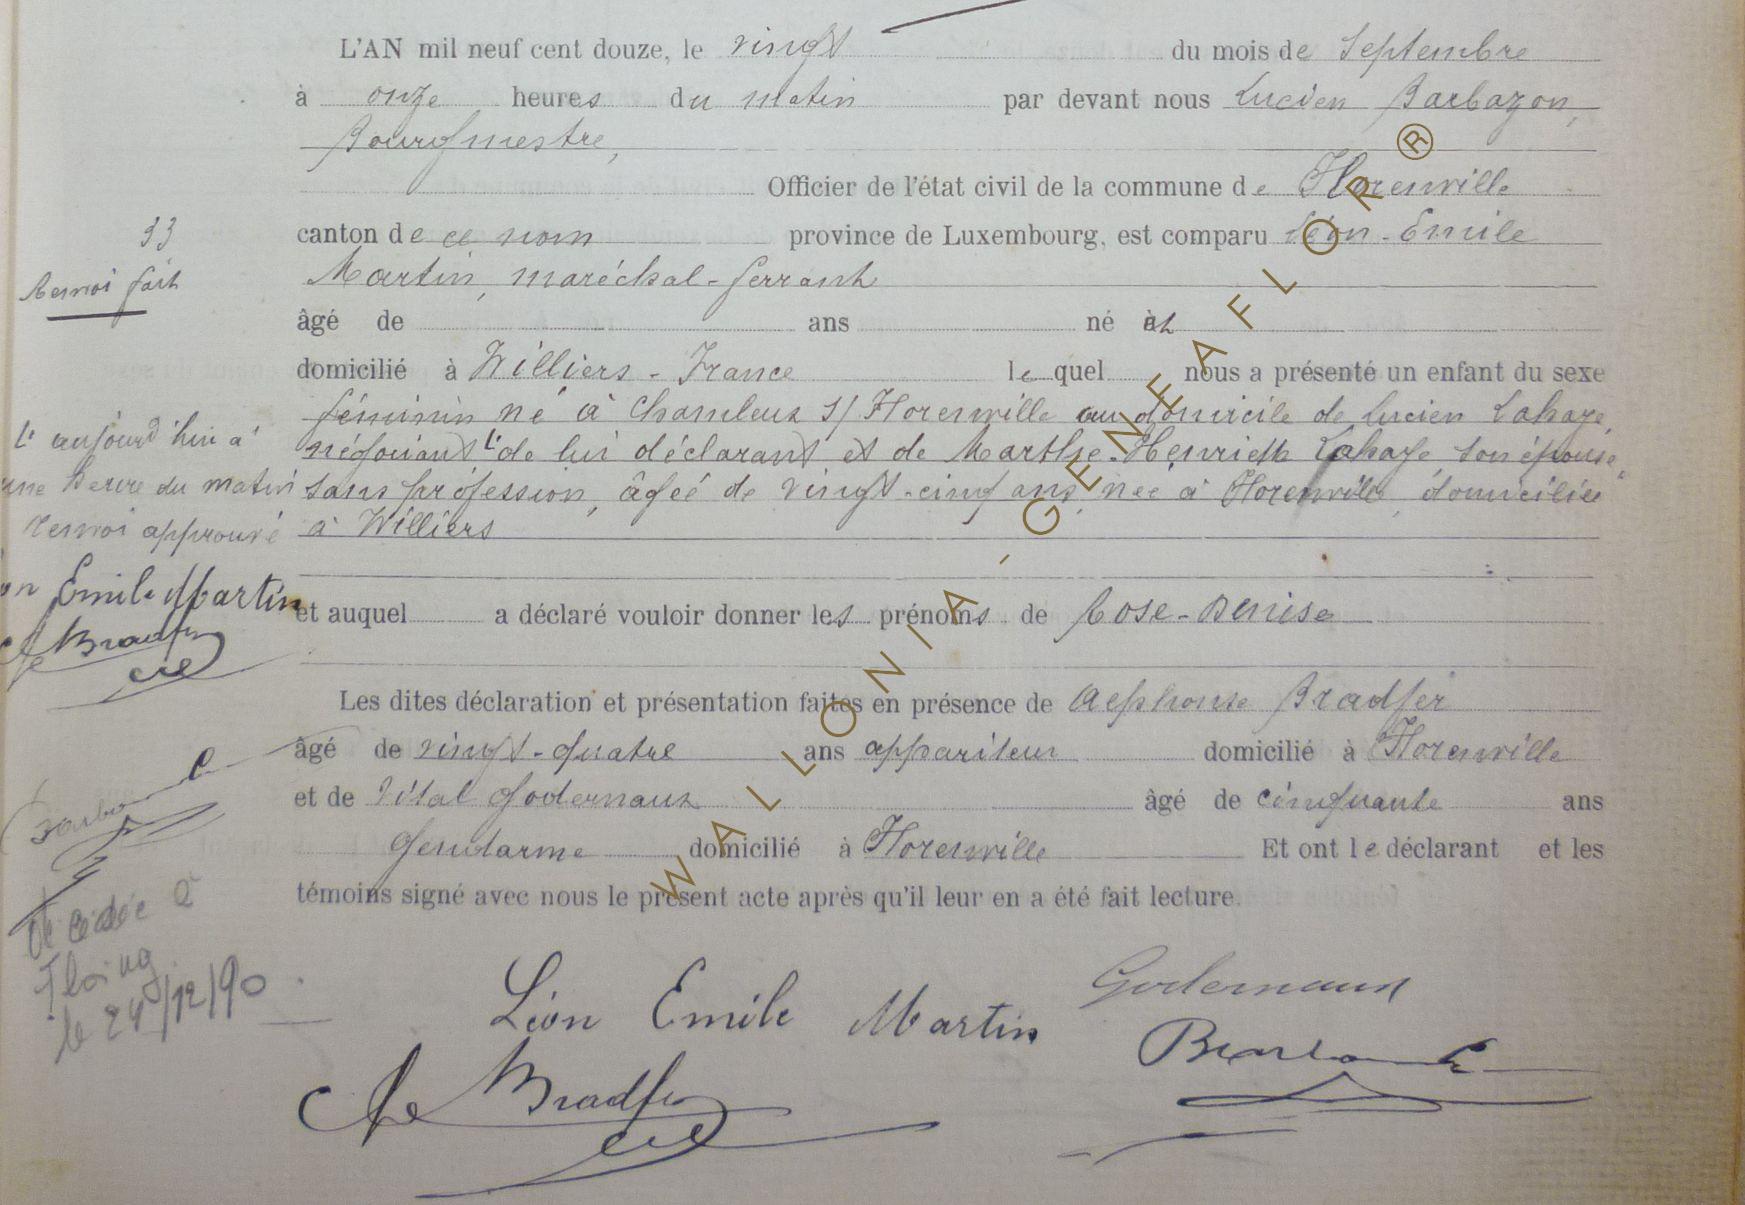 L'AN mil neuf cent douze, le vingt du mois de Septembre
à onze heures du matin par devant nous Lucien Barbazon,
Bourgmestre,
Officier de l'état civil de la commune de Florenville
canton de ce nom province de Luxembourg, est comparu Léon-Emile
Martin, maréchal-ferrant
âgé de ans né à
domicilié à Williers - France lequel nous a présenté un enfant du sexe
féminin né à Chameleux s/ Florenville au domicile de Lucien Lahaye,
négociant L' de lui déclarant et de Marthe-Henriette Lahaye son épouse,
sans profession, âgée de vingt-cinq ans, née à Florenville, domiciliée
à Williers
et auquel a déclaré vouloir donner les prénoms de Rose-Denise
Les dites déclaration et présentation faites en présence de Alphonse Bradfer
âgé de vingt-quatre ans appariteur domicilié à Florenville
et de Vital Godernaux âgé de cinquante ans
gendarme domicilié à Florenville Et ont le déclarant et les
témoins signé avec nous le présent acte après qu'il leur en a été fait lecture.
Léon Emile Martin Godernaux
Bradfer
93
Renvoi fait
L' aujourd'hui à
une heure du matin
Renvoi approuvé
Emile Martin
Bradfer
Décédée à
Floing
le 24/12/90
WALLONIA-GENEAFLOR®